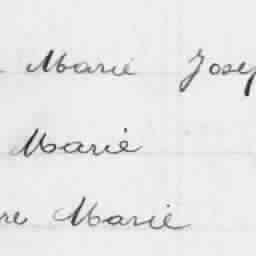 Marie Josep
Marie
re Marie